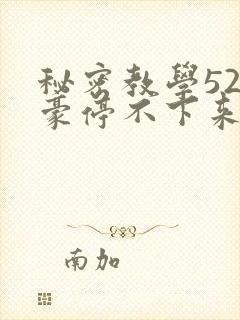 秘密教學52
豪停不下來
南加